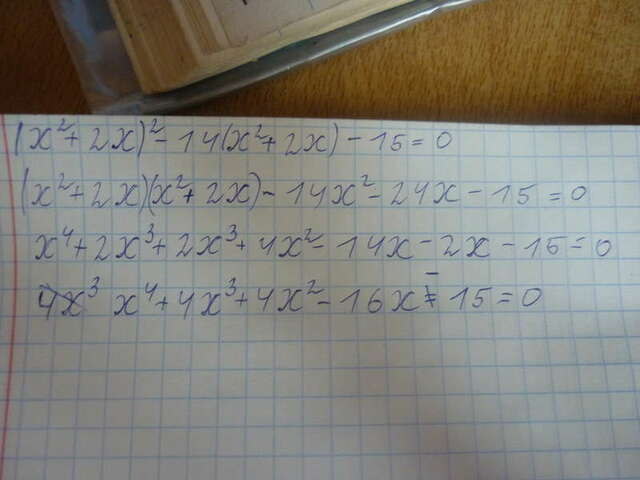 (x²+2x)²-14(x²+2x)-15=0
(x²+2x)(x²+2x)-14x²-24x-15=0
x⁴+2x³+2x³+4x²-14x-2x-15=0
4x³ x⁴+4x³+4x²-16x-15=0